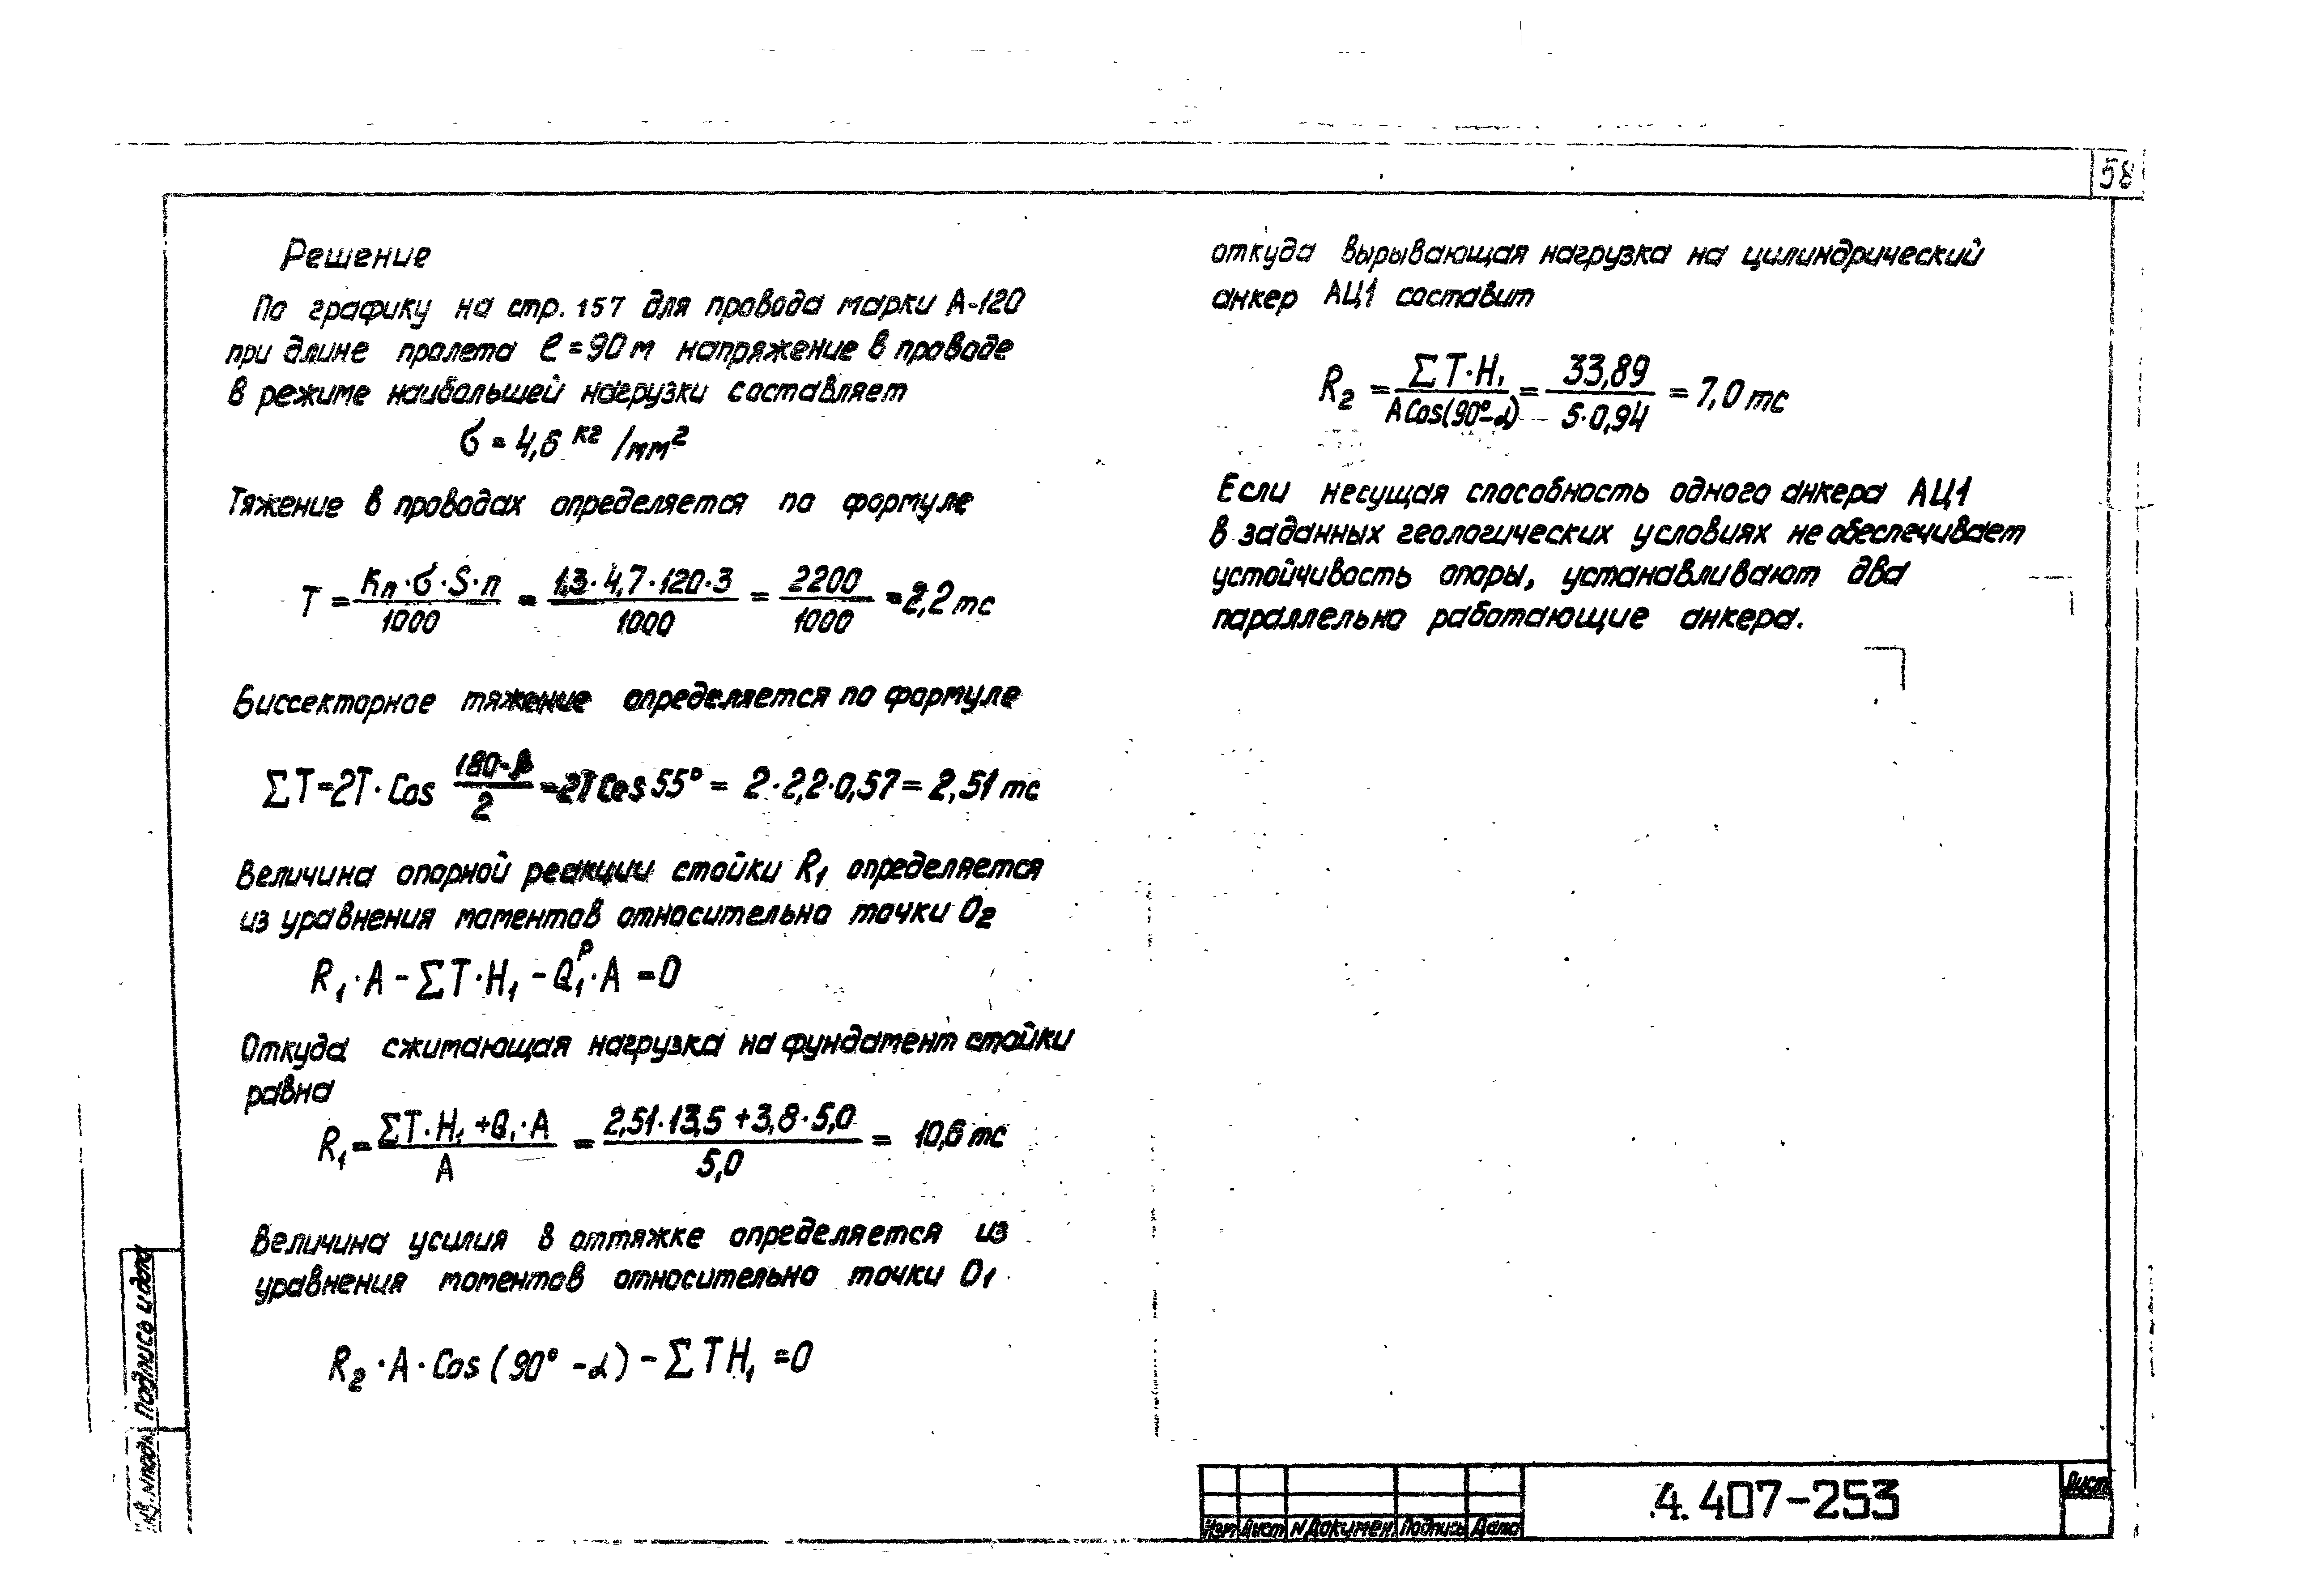 58
Решение
По графику на стр. 157 для провода марки А-120
при длине пролета ℓ = 90 м напряжение в проводе
в режиме наибольшей нагрузки составляет
σ = 4,6 кг/мм²
Тяжение в проводах определяется по формуле
T = Kп·σ·S·п / 1000 = 1,3·4,7·120·3 / 1000 = 2200 / 1000 = 2,2 тс
Биссекторное тяжение определяется по формуле
ΣT = 2T·Cos (180-β) / 2 = 2T Cos 55° = 2·2,2·0,57 = 2,51 тс
Величина опорной реакции стойки R₁ определяется
из уравнения моментов относительно точки О₂
R₁·A - ΣT·H₁ - Q₁ᴾ·A = 0
Откуда сжимающая нагрузка на фундамент стойки
равна
R₁ = ΣT·H₁ + Q₁·A / A = 2,51·13,5 + 3,8·5,0 / 5,0 = 10,6 тс
Величина усилия в оттяжке определяется из
уравнения моментов относительно точки О₁
R₂·A·Cos (90° - α) - ΣT H₁ = 0
откуда вырывающая нагрузка на цилиндрический
анкер АЦ1 составит
R₂ = ΣT·H₁ / A Cos(90°-α) = 33,89 / 5·0,94 = 7,0 тс
Если несущая способность одного анкера АЦ1
в заданных геологических условиях не обеспечивает
устойчивость опоры, устанавливают два
параллельно работающие анкера.
Подпись и дата
Инв. N подл.
Изм Лист N Докумен Подпись Дата
4.407-253
Лист